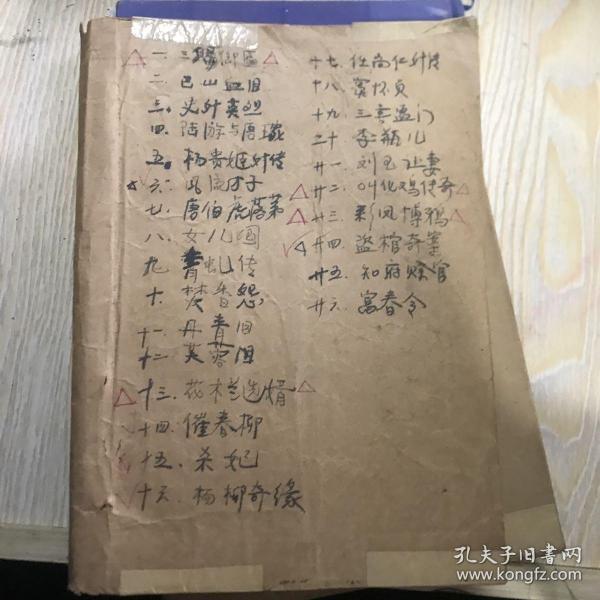 一. 三
二. 巴山血泪
三.
四. 陆游与唐琬
五. 杨贵姬外传
六. 风流才子
七. 唐伯虎落第
八. 女儿国
九. 青虬传
十. 焚香怨
十一. 丹青泪
十二. 芙蓉泪
十三. 花木兰选婿
十四. 催春柳
十五. 杀妃
十六. 杨柳奇缘
十七. 任商仁外传
十八. 窦怀贞
十九. 三李逼门
二十 李瓶儿
廿一. 刘巴让妻
廿二. 叫化鸡传奇
廿三. 彩凤博鸦
廿四. 盗棺奇案
廿五. 知府赊官
廿六. 富春令
孔夫子旧书网
www.kongfz.com